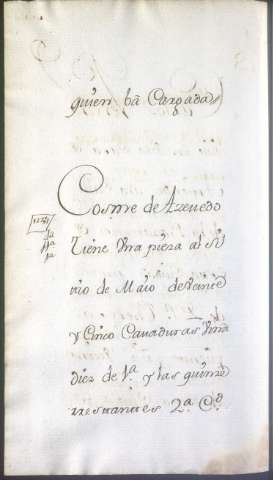 quien ba Cargada
Cosme de Azevedo
Tiene Una pieza al Si
tio de Maio de veinte
y Cinco Cavaduras Una
diez de 1ª y las quince
rrestantes 2ª Cd